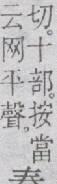 切。十部。按當
云网平聲。